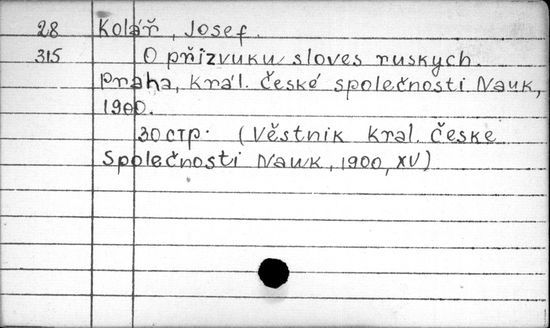 28 Kolář, Josef.
315 O přízvuku sloves ruskych.
Praha, Král. České společnosti Nauk,
1900.
30 стр. (Věstnik Kral. České
Společnosti Nauk, 1900, XV)